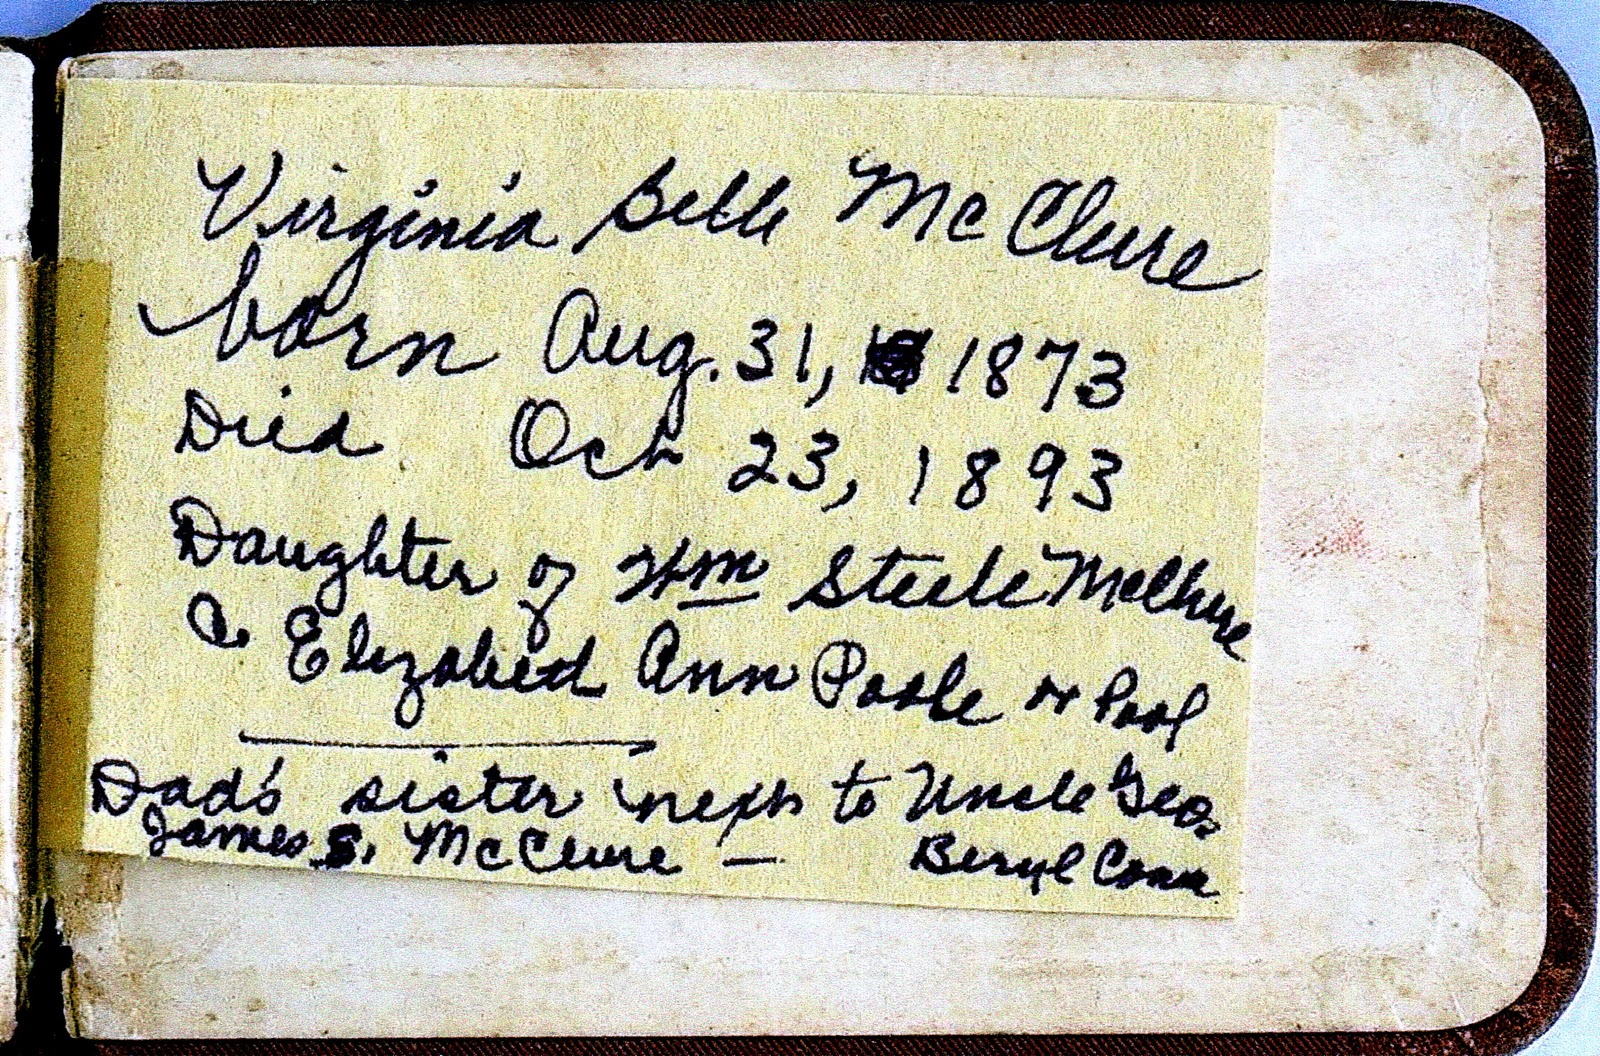 Virginia Belle McClure
born Aug. 31, 1873
Died Oct 23, 1893
Daughter of Wm Steele McClure
& Elizabeth Ann Poole or Pool
Dad's sister next to Uncle Geo.
James S. McClure — Beryl Conn